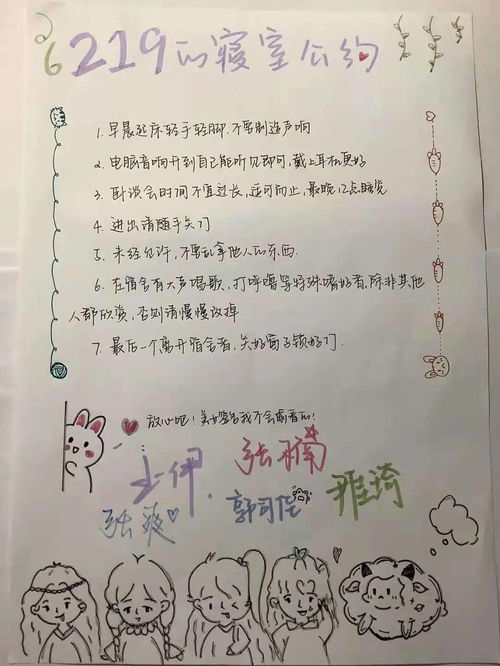 6219的寝室公约
1. 早晨起床轻手轻脚,不要制造声响
2. 电脑音响开到自己能听见即可,戴上耳机更好
3. 卧谈会时间不宜过长,适可而止,最晚12点睡觉
4. 进出请随手关门
5. 未经允许,不要乱拿他人的东西.
6. 在宿舍有大声唱歌,打呼噜等特殊嗜好者,除非其他
人都欣赏,否则请慢慢改掉
7. 最后一个离开宿舍者,关好窗子锁好门.
放心吧!美女签名我不会偷看的!
张爽